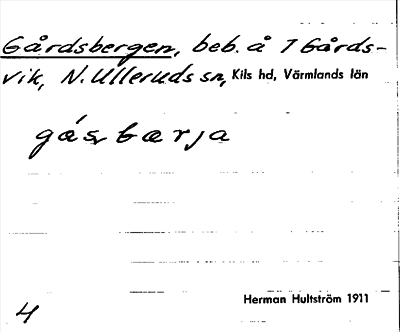 Gårdsbergen, beb. å 1 Gårds-
vik, N. Ulleruds sn, Kils hd, Värmlands län
gás bærja
Herman Hultström 1911
4